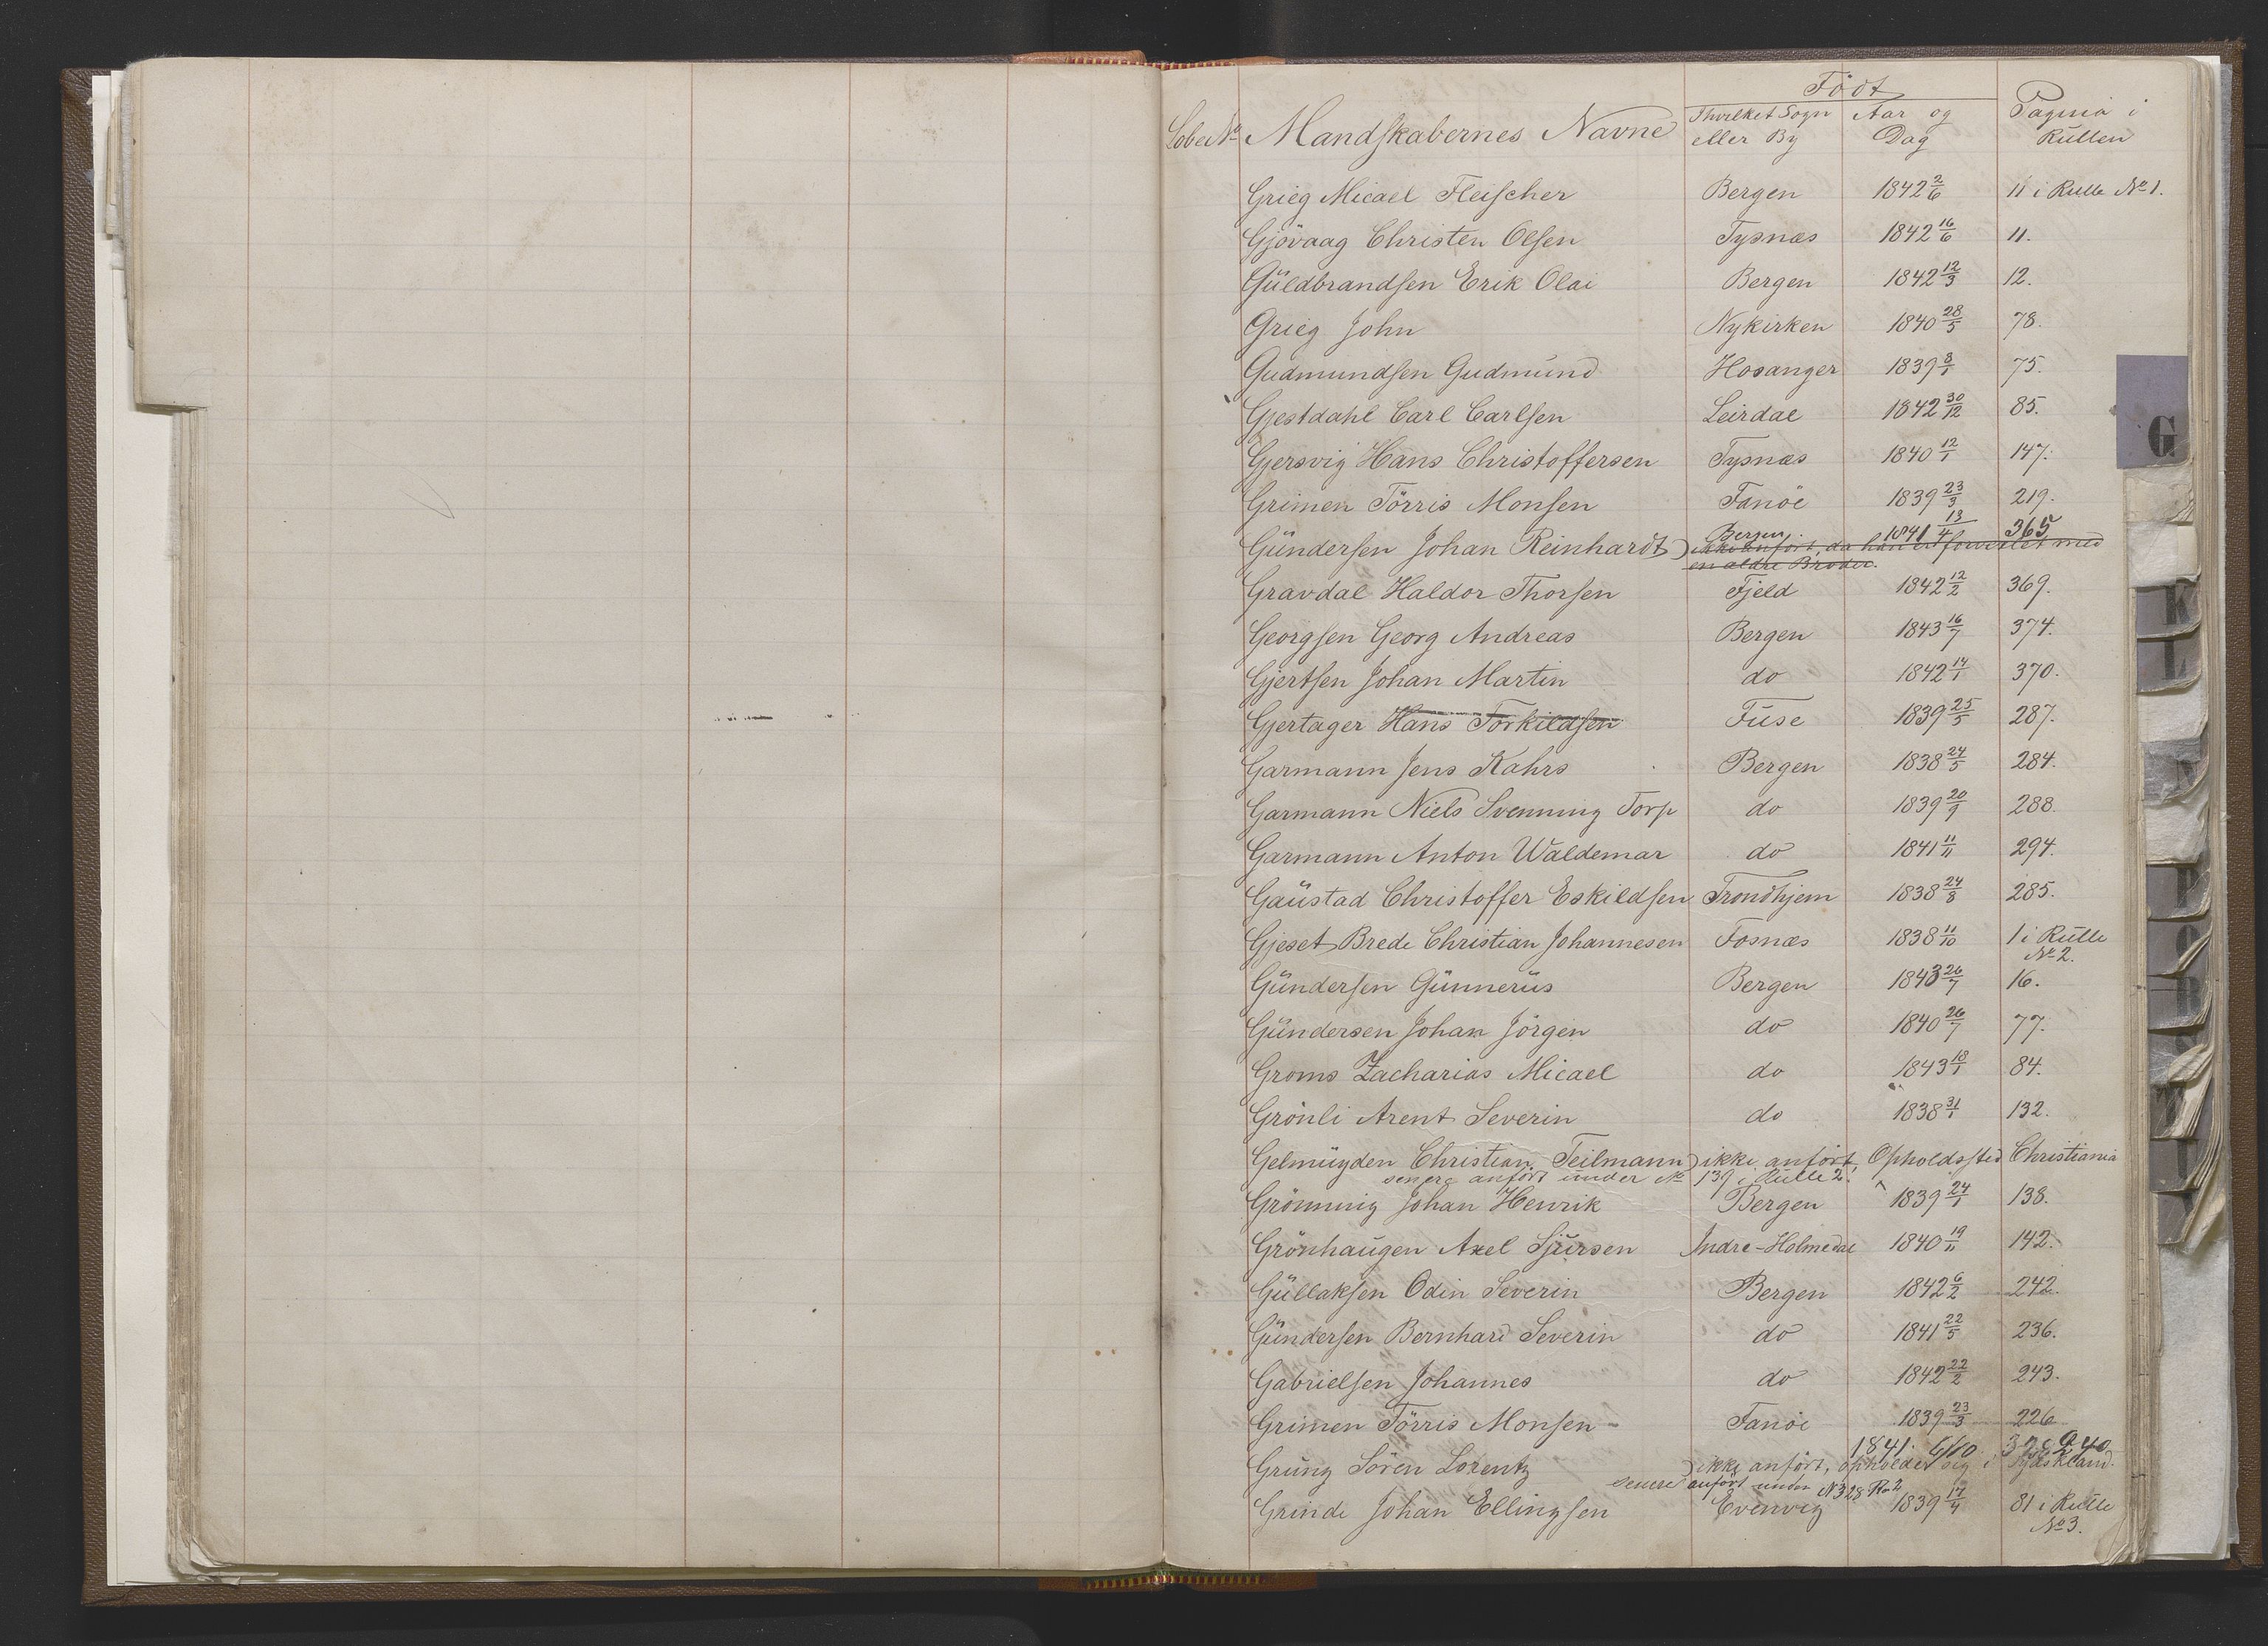 Födt
Lobe No Mandskabernes Navne I hvilket Sogn eller By Aar og Dag Pagina i Rullen
Grieg Micael Fleischer Bergen 1842 2/6 11 i Rulle No 1.
Gjövaag Christen Olsen Tysnæs 1842 16/6 11.
Güldbrandsen Erik Olai Bergen 1842 12/3 12.
Grieg John Nykirken 1840 28/5 78.
Gudmundsen Gudmund Hosanger 1839 8/1 75.
Gjestdahl Carl Carlsen Leirdal 1842 30/12 85.
Gjersvig Hans Christoffersen Tysnæs 1840 12/1 147.
Grimen Törris Monsen Fanöe 1839 23/3 219.
Bergen 1841 13/4 365
Gündersen Johan Reinhardt) ikke anfört, da han er forvexlet med
en ældre Broder.
Gravdal Haldor Thorsen Fjeld 1842 12/2 369.
Georgsen Georg Andreas Bergen 1843 16/7 374.
Gjertsen Johan Martin do 1842 14/1 370.
Gjertager Hans Torkildsen Fuse 1839 25/5 287.
Garmann Jens Kahrs Bergen 1838 24/5 284.
Garmann Niels Svenning Torp do 1839 20/9 288.
Garmann Anton Waldemar do 1841 11/11 294.
Gaustad Christoffer Eskildsen Trondhjem 1838 24/8 285.
Gjeset Brede Christian Johannesen Fosnæs 1838 11/10 1 i Rulle
No 2.
Gündersen Günnerüs Bergen 1843 26/7 16.
Gündersen Johan Jörgen do 1840 26/7 77.
Groms Zacharias Micael do 1843 18/1 84.
Grönli Arent Severin do 1838 31/1 132.
Gelmuyden Christian Teilmann) ikke anfört, Opholdssted Christiania
senere anfört under No 139 i Rulle 2.
Grönning Johan Henrik Bergen 1839 24/1 138.
Grönhaugen Axel Sjursen Indre-Holmedal 1840 19/11 142.
Güllaksen Odin Severin Bergen 1842 6/2 242.
Gündersen Bernhard Severin do 1841 22/5 236.
Gabrielsen Johannes do 1842 22/2 243.
Grimen Törris Monsen - Fanöe 1839 23/3 226
1841. 6/10
Grung Sören Lorentz) ikke anfört, opholder sig i Tydskland.
senere anfört under No 328 R 2
Grinde Johan Ellingsen Evenvig 1839 17/4 81 i Rulle
No 3.
G
K
L
N
P
R
T